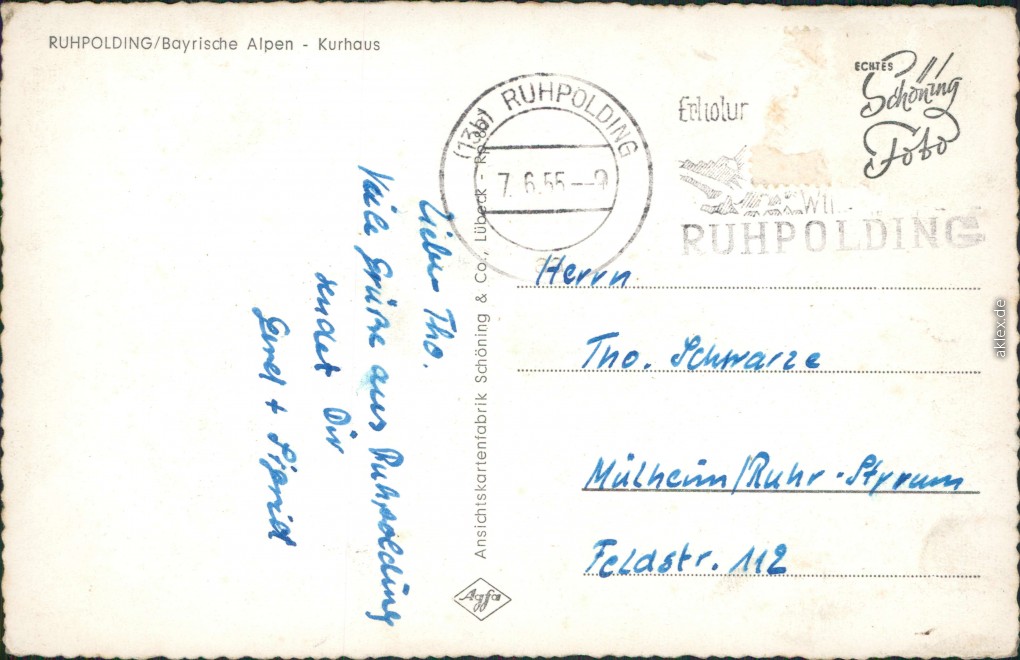 RUHPOLDING/Bayrische Alpen - Kurhaus
(13b) RUHPOLDING
7.6.55--9
Erholung
WIN
RUHPOLDING
ECHTES
Schöning
Foto
Lieber Tho.
Viele Grüße aus Ruhpolding
sendet Dir
Gerd + Sigrid
Ansichtskartenfabrik Schöning & Co., Lübeck -
Agfa
Herrn
Tho. Schwarze
Mülheim/Ruhr-Styrum
Feldstr. 112
aklex.de